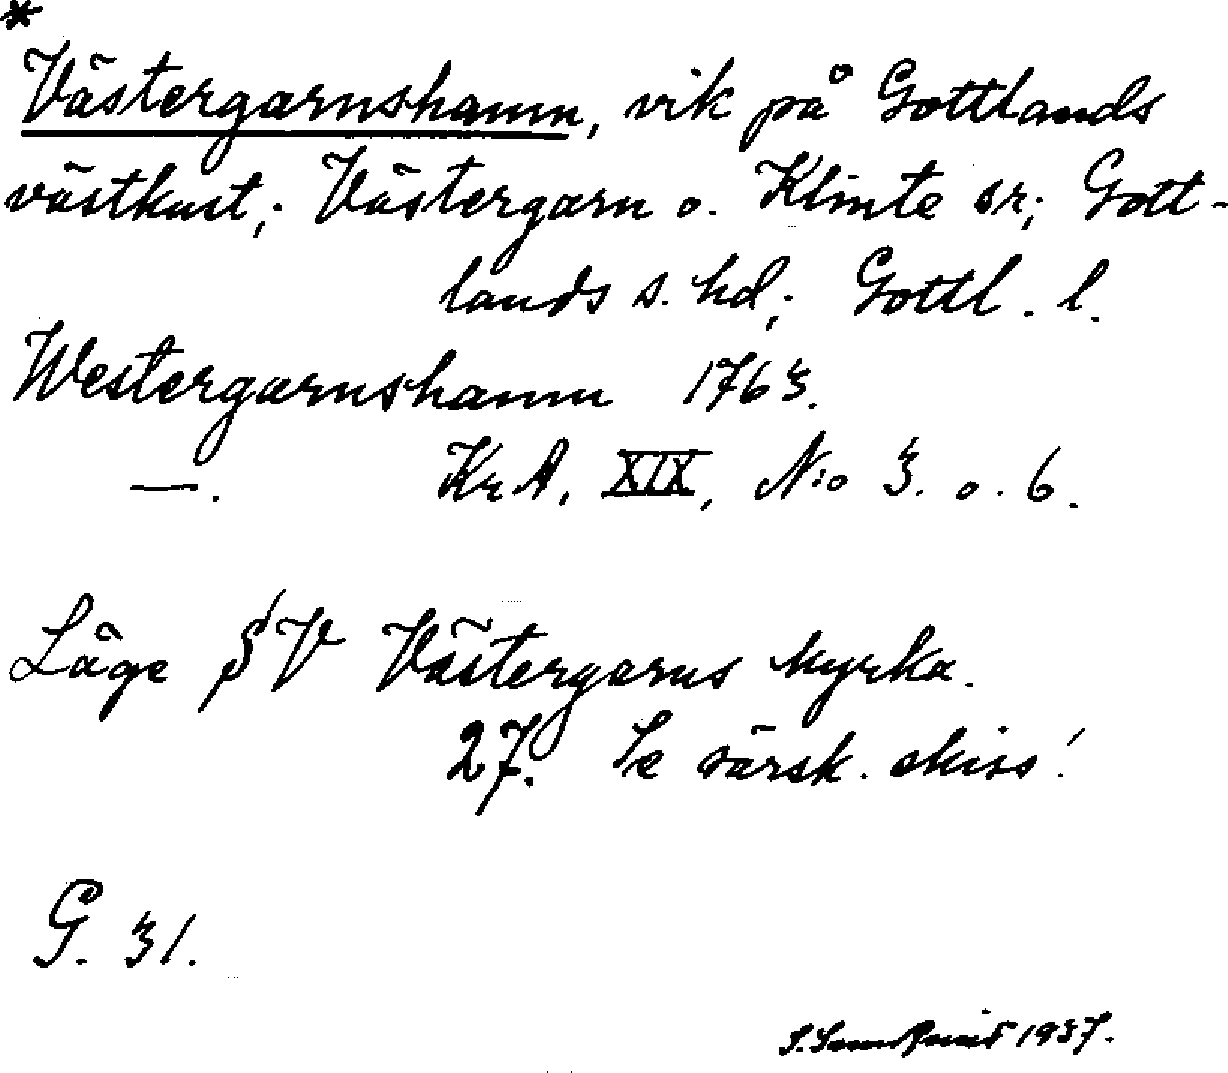 *
Västergarnshamn, vik på Gottlands
västkust; Västergarn o. Klinte sr; Gott-
lands s. hd; Gottl. l.
Westergarnshamn 1763.
—. KrA, XIX, N:o 3. o. 6.
Läge SV Västergarns kyrka.
27. Se särsk. skiss!
G. 31.
1937.